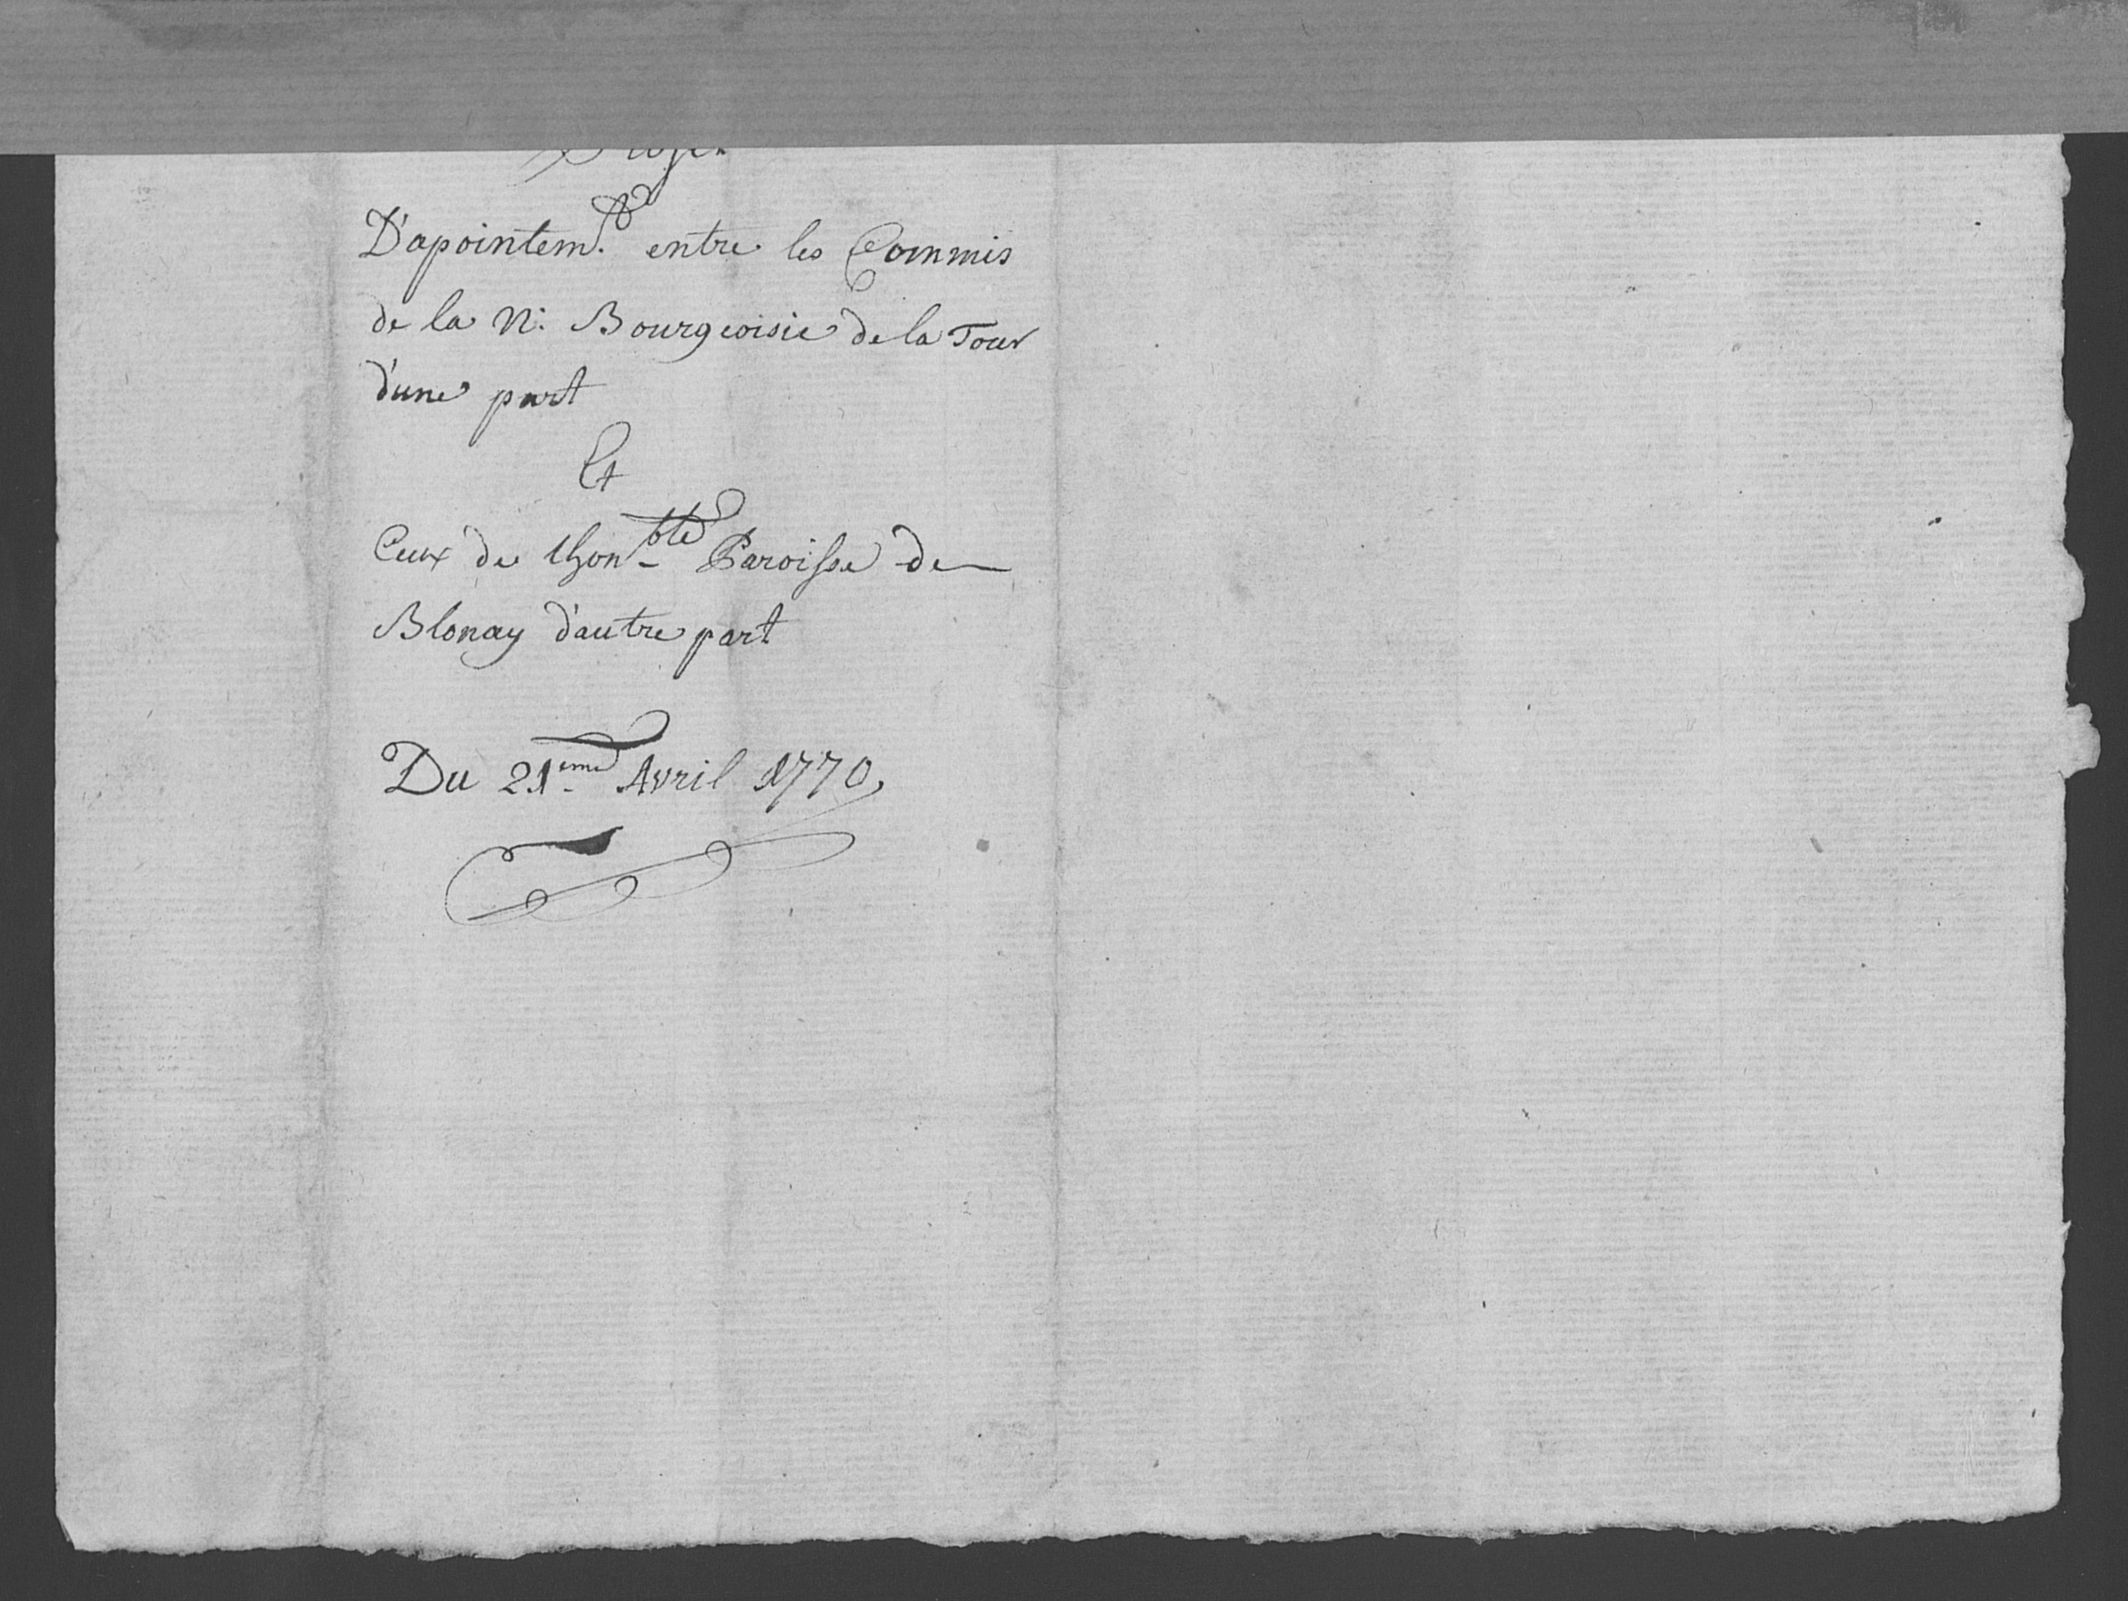 Projet
D'apointem.t entre les Commis
de la N: Bourgeoisie de la Tour
d'une part
Et
Ceux de lhon.ble Paroisse de
Blonay d'autre part
Du 21.eme Avril 1770,